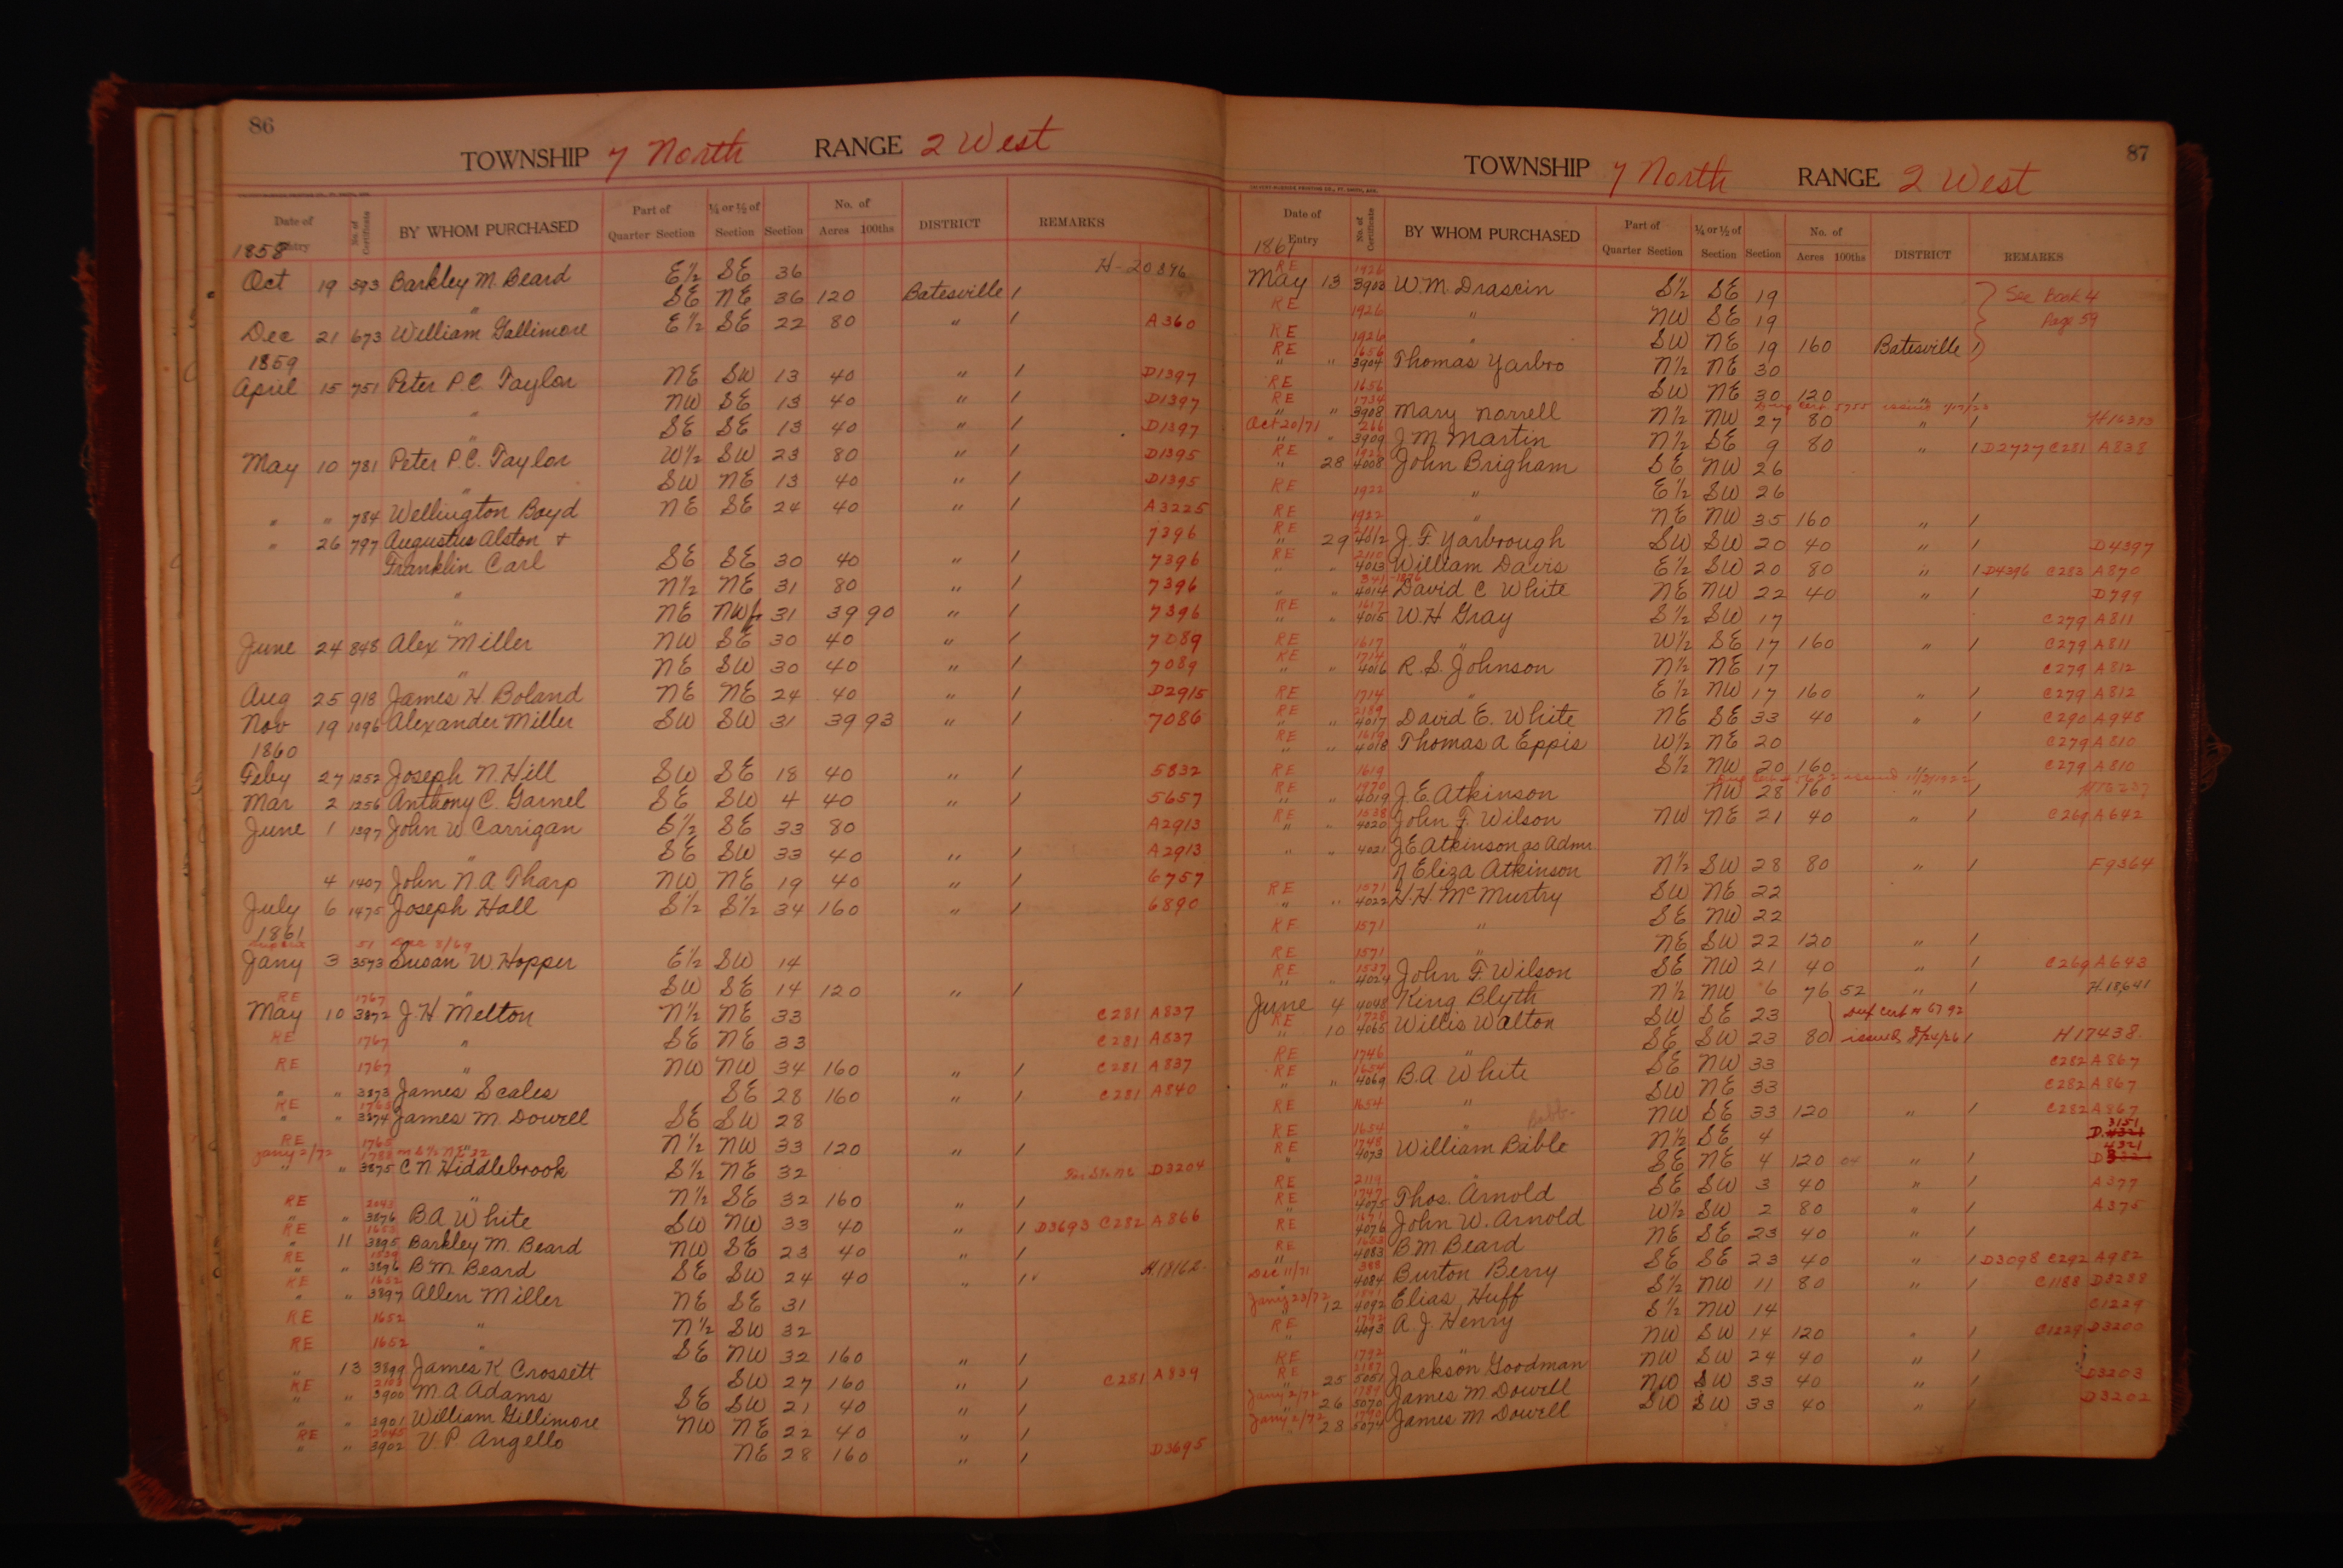 86
TOWNSHIP 7 North RANGE 2 West
Date of Entry No. of Certificate BY WHOM PURCHASED Part of Quarter Section ¼ or ½ of Section Section No. of Acres 100ths DISTRICT REMARKS
1858
H-20896
Oct 19 593 Barkley M. Beard E½ SE 36
" SE NE 36 120 Batesville /
Dec 21 673 William Gallimore E½ SE 22 80 " / A360
1859
April 15 751 Peter P.C. Taylor NE SW 13 40 " / D1397
" NW SE 13 40 " / D1397
" SE SE 13 40 " / D1397
May 10 781 Peter P.C. Taylor W½ SW 23 80 " / D1395
" SW NE 13 40 " / D1395
" " 784 Wellington Boyd NE SE 24 40 " / A3225
" 26 797 Augustus Alston + 7396
Franklin Carl SE SE 30 40 " / 7396
" N½ NE 31 80 " / 7396
" NE NW 31 39 90 " / 7396
June 24 848 Alex Miller NW SE 30 40 " / 7089
" NE SW 30 40 " / 7089
Aug 25 918 James H. Boland NE NE 24 40 " / D2915
Nov 19 1096 Alexander Miller SW SW 31 39 93 " / 7086
1860
Feby 27 1252 Joseph N. Hill SW SE 18 40 " / 5832
Mar 2 1256 Anthony C. Garnel SE SW 4 40 " / 5657
June 1 1397 John W Carrigan S½ SE 33 80 A2913
" SE SW 33 40 " / A2913
4 1407 John N.A Tharp NW NE 19 40 " / 6757
July 6 1475 Joseph Hall S½ S½ 34 160 " / 6890
1861
51 8/69
Jany 3 3573 Susan W. Hopper E½ SW 14
" SW SE 14 120 " /
RE 1767
May 10 3872 J.H Melton N½ NE 33 C281 A837
RE 1767 " SE NE 33 C281 A837
RE 1767 " NW NW 34 160 " / C281 A837
" " 3873 James Scales SE 28 160 " / C281 A840
RE 1765
" " 3874 James M. Dowell SE SW 28
RE 1765 " N½ NW 33 120 " /
Jany 2/72 1788 S½ NE 32
" " 3875 C N Hiddlebrook S½ NE 32 For S½ NE D3204
" N½ SE 32 160 " /
RE 2043
" " 3876 B.A White SW NW 33 40 " / D3693 C282 A866
RE 1653
" 11 3895 Barkley M. Beard NW SE 23 40 " /
RE 1529
" " 3896 B.M. Beard SE SW 24 40 " / H18162
RE 1652
" " 3897 Allen Miller NE SE 31
RE 1652 " N½ SW 32
RE 1652 " SE NW 32 160 " /
" 13 3899 James K Crossett SW 27 160 " / C281 A839
RE 2103
" " 3900 M.A Adams SE SW 21 40 " /
" " 3901 William Gillimore NW NE 22 40 " /
RE 2045
" " 3902 V.P. Angello NE 28 160 " / D3695
87
TOWNSHIP 7 North RANGE 2 West
Date of Entry No. of Certificate BY WHOM PURCHASED Part of Quarter Section ¼ or ½ of Section Section No. of Acres 100ths DISTRICT REMARKS
1861
RE 1926
May 13 3903 W.M. Drascin S½ SE 19 See Book 4
RE 1926 " NW SE 19 Page 59
RE 1926 " SW NE 19 160 Batesville /
RE 1656
" " 3904 Thomas Yarbro N½ NE 30
RE 1656 SW NE 30 120 " /
RE 1734 Dup Cert 5755 issued
" " 3908 Mary Norrell N½ NW 27 80 " /
Oct 20/71 266
" " 3909 J M Martin N½ SE 9 80 " / D2727 C281 A838
RE 1922
" 28 4008 John Brigham SE NW 26
RE 1922 " E½ SW 26
RE 1922 " NE NW 35 160 " /
RE
" 29 4012 J.F. Yarbrough SW SW 20 40 " / D4397
RE 2110
" " 4013 William Davis E½ SW 20 80 " / D4396 C283 A870
341-1876
" " 4014 David C White NE NW 22 40 " / D799
RE 1617
" " 4015 W.H Gray S½ SW 17 C279 A811
RE 1617 " W½ SE 17 160 " / C279 A811
RE 1714
" " 4016 R.S. Johnson N½ NE 17 C279 A812
RE 1714 " E½ NW 17 160 " / C279 A812
RE 2189
" " 4017 David E. White NE SE 33 40 " / C290 A948
RE 1619
" " 4018 Thomas A Eppis W½ NE 20 C279 A810
RE 1619 " S½ NW 20 160 " / C279 A810
RE 1970
" " 4019 J.E. Atkinson NW 28 160 " /
RE 1538
" " 4020 John F. Wilson NW NE 21 40 " / C269 A642
" " 4021 J E Atkinson as Admr
N Eliza Atkinson N½ SW 28 80 " / F9364
RE 1571
" " 4022 H.H. McMurtry SW NE 22
RE 1571 " SE NW 22
RE 1571 " NE SW 22 120 " /
RE 1537
" " 4024 John F Wilson SE NW 21 40 " / C269 A643
June 4 4048 King Blyth N½ NW 6 76 52 " / H.18,641
RE 1728
" 10 4065 Willis Walton SW SE 23 Dup Cert # 5792
RE 1746 " SE SW 23 80 issued 8/24/26 / H17438
RE 1654
" " 4069 B.A White SE NW 33 C282 A867
" SW NE 33 C282 A867
RE 1654 " NW SE 33 120 " / C282 A867
RE 1654
RE 1748
" 4073 William Bible N½ SE 4 D 3151
SE NE 4 120 04 " / D 4321
RE 2119
RE 1747
" 4075 Thos. Arnold SE SW 3 40 " / A377
RE 1671
4076 John W. Arnold W½ SW 2 80 " / A375
RE 1683
" 4083 B.M Beard NE SE 23 40 " /
Dec 11/71 388
4084 Burton Berry SE SE 23 40 " / D3098 C292 A982
Jany 23/72
12 4092 Elias Huff S½ NW 11 80 " / C1188 D3288
RE 1792
" 4093 A.J. Henry S½ NW 14 C1229
RE 1792 " NW SW 14 120 " / C1229 D3200
RE 2187
25 5051 Jackson Goodman NW SW 24 40 " /
Jany 2/72 1789
26 5070 James M Dowell NW SW 33 40 " / D3203
Jany 2/72 1790
28 5074 James M Dowell SW SW 33 40 " / D3202